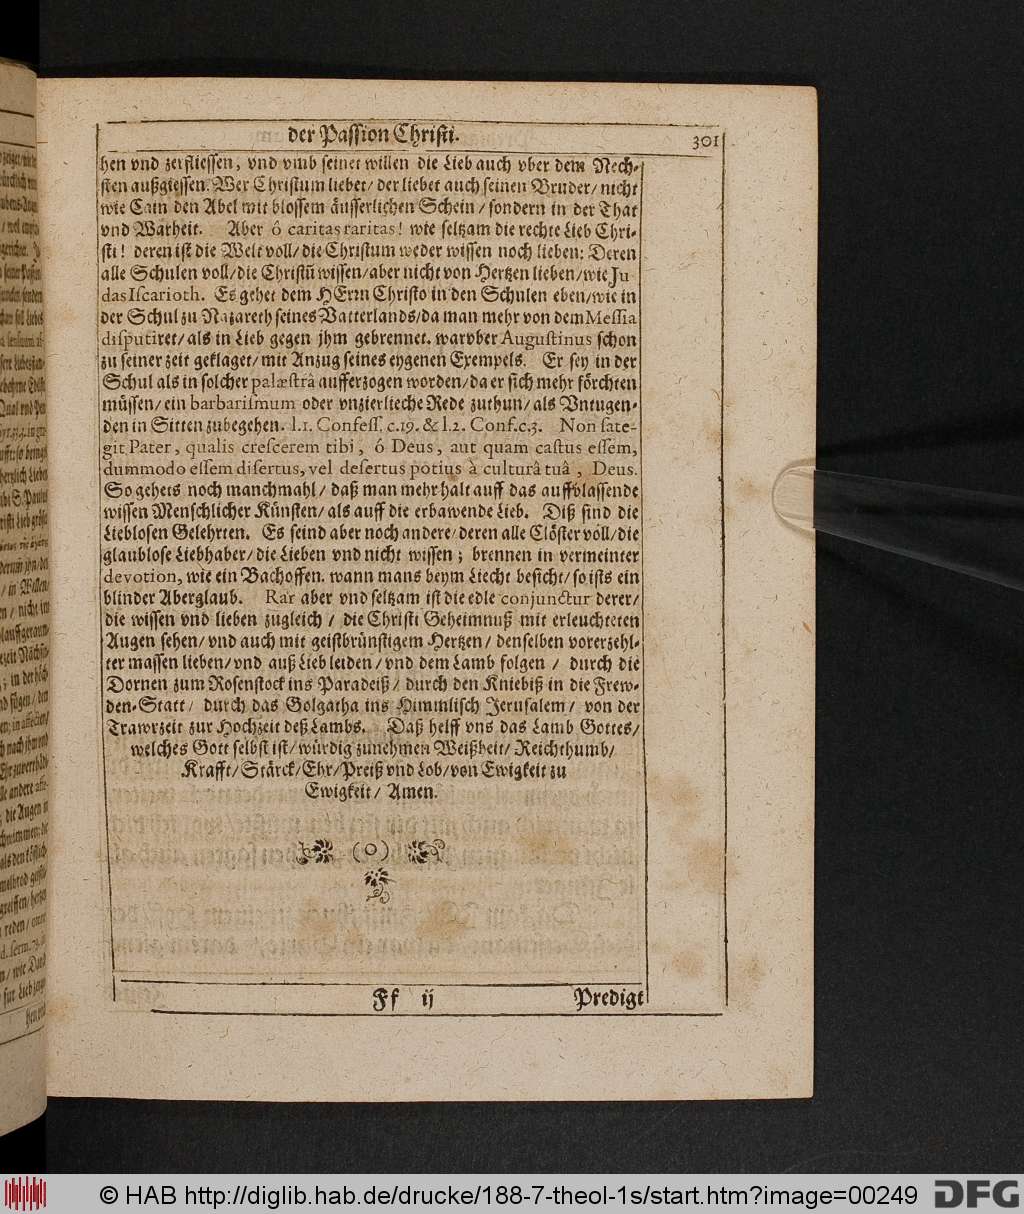 der Passion Christi.
301
hen vnd zerfliessen, vnd vmb seinet willen die Lieb auch vber dem Nech-
sten außgiessen. Wer Christum liebet/ der liebet auch seinen Bruder/ nicht
wie Cain den Abel mit blossem äusserlichen Schein/ sondern in der That
vnd Warheit. Aber ô caritas raritas! wie seltzam die rechte Lieb Chri-
sti! deren ist die Welt voll/ die Christum weder wissen noch lieben: Deren
alle Schulen voll/ die Christū wissen/ aber nicht von Hertzen lieben/ wie Ju
das Iscarioth. Es gehet dem HErrn Christo in den Schulen eben/ wie in
der Schul zu Nazareth seines Vatterlands/ da man mehr von dem Messia
disputiret/ als in Lieb gegen jhm gebrennet. warvber Augustinus schon
zu seiner zeit geklaget/ mit Anzug seines eygenen Exempels. Er sey in der
Schul als in solcher palæstrâ aufferzogen worden/ da er sich mehr förchten
müssen/ ein barbarismum oder vnzierlieche Rede zuthun/ als Vntugen-
den in Sitten zubegehen. l.1. Confess. c.19. & l.2. Conf.c.3. Non sate-
git Pater, qualis crescerem tibi, ô Deus, aut quàm castus essem,
dummodo essem disertus, vel desertus potius à culturâ tuâ, Deus.
So gehets noch manchmahl/ daß man mehr halt auff das auffblassende
wissen Menschlicher Künsten/ als auff die erbawende Lieb. Diß sind die
Lieblosen Gelehrten. Es seind aber noch andere/ deren alle Clöster voll/ die
glaublose Liebhaber/ die Lieben vnd nicht wissen; brennen in vermeinter
devotion, wie ein Bachoffen. wann mans beym Liecht besicht/ so ists ein
blinder Aberglaub. Rar aber vnd seltzam ist die edle conjunctur derer/
die wissen vnd lieben zugleich/ die Christi Geheimnuß mit erleuchteten
Augen sehen/ vnd auch mit geistbrünstigem Hertzen/ denselben vorerzehl-
ter massen lieben/ vnd auß Lieb leiden/ vnd dem Lamb folgen/ durch die
Dornen zum Rosenstock ins Paradeiß/ durch den Kniebiß in die Frew-
den-Statt/ durch das Golgatha ins Himmlisch Jerusalem/ von der
Trawrzeit zur Hochzeit deß Lambs. Daß helff vns das Lamb Gottes/
welches Gott selbst ist/ würdig zunehmen Weißheit/ Reichthumb/
Krafft/ Stärck/ Ehr/ Preiß vnd Lob/ von Ewigkeit zu
Ewigkeit/ Amen.
(o)
Ff ij
Predigt
© HAB http://diglib.hab.de/drucke/188-7-theol-1s/start.htm?image=00249
DFG